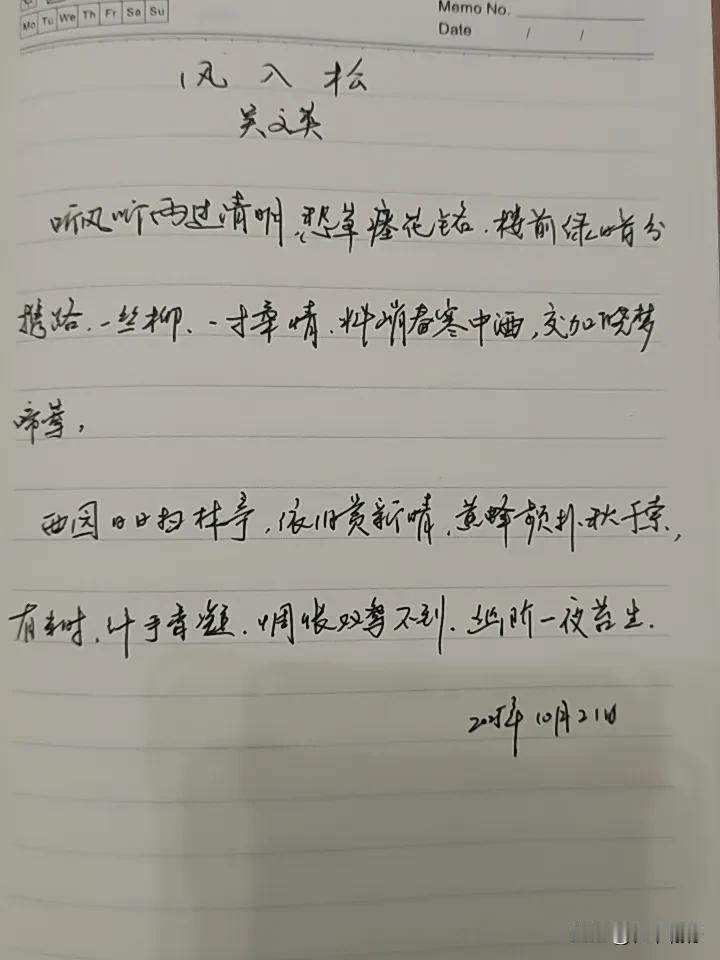 Mo Tu We Th Fr Sa Su
Memo No.
Date / /
风入松
吴文英
听风听雨过清明,愁草瘗花铭.楼前绿暗分
携路.一丝柳、一寸柔情.料峭春寒中酒,交加晓梦
啼莺,
西园日日扫林亭,依旧赏新晴,黄蜂频扑秋千索,
有当时、纤手香凝.惆怅双鸳不到.幽阶一夜苔生.
2025年10月21日